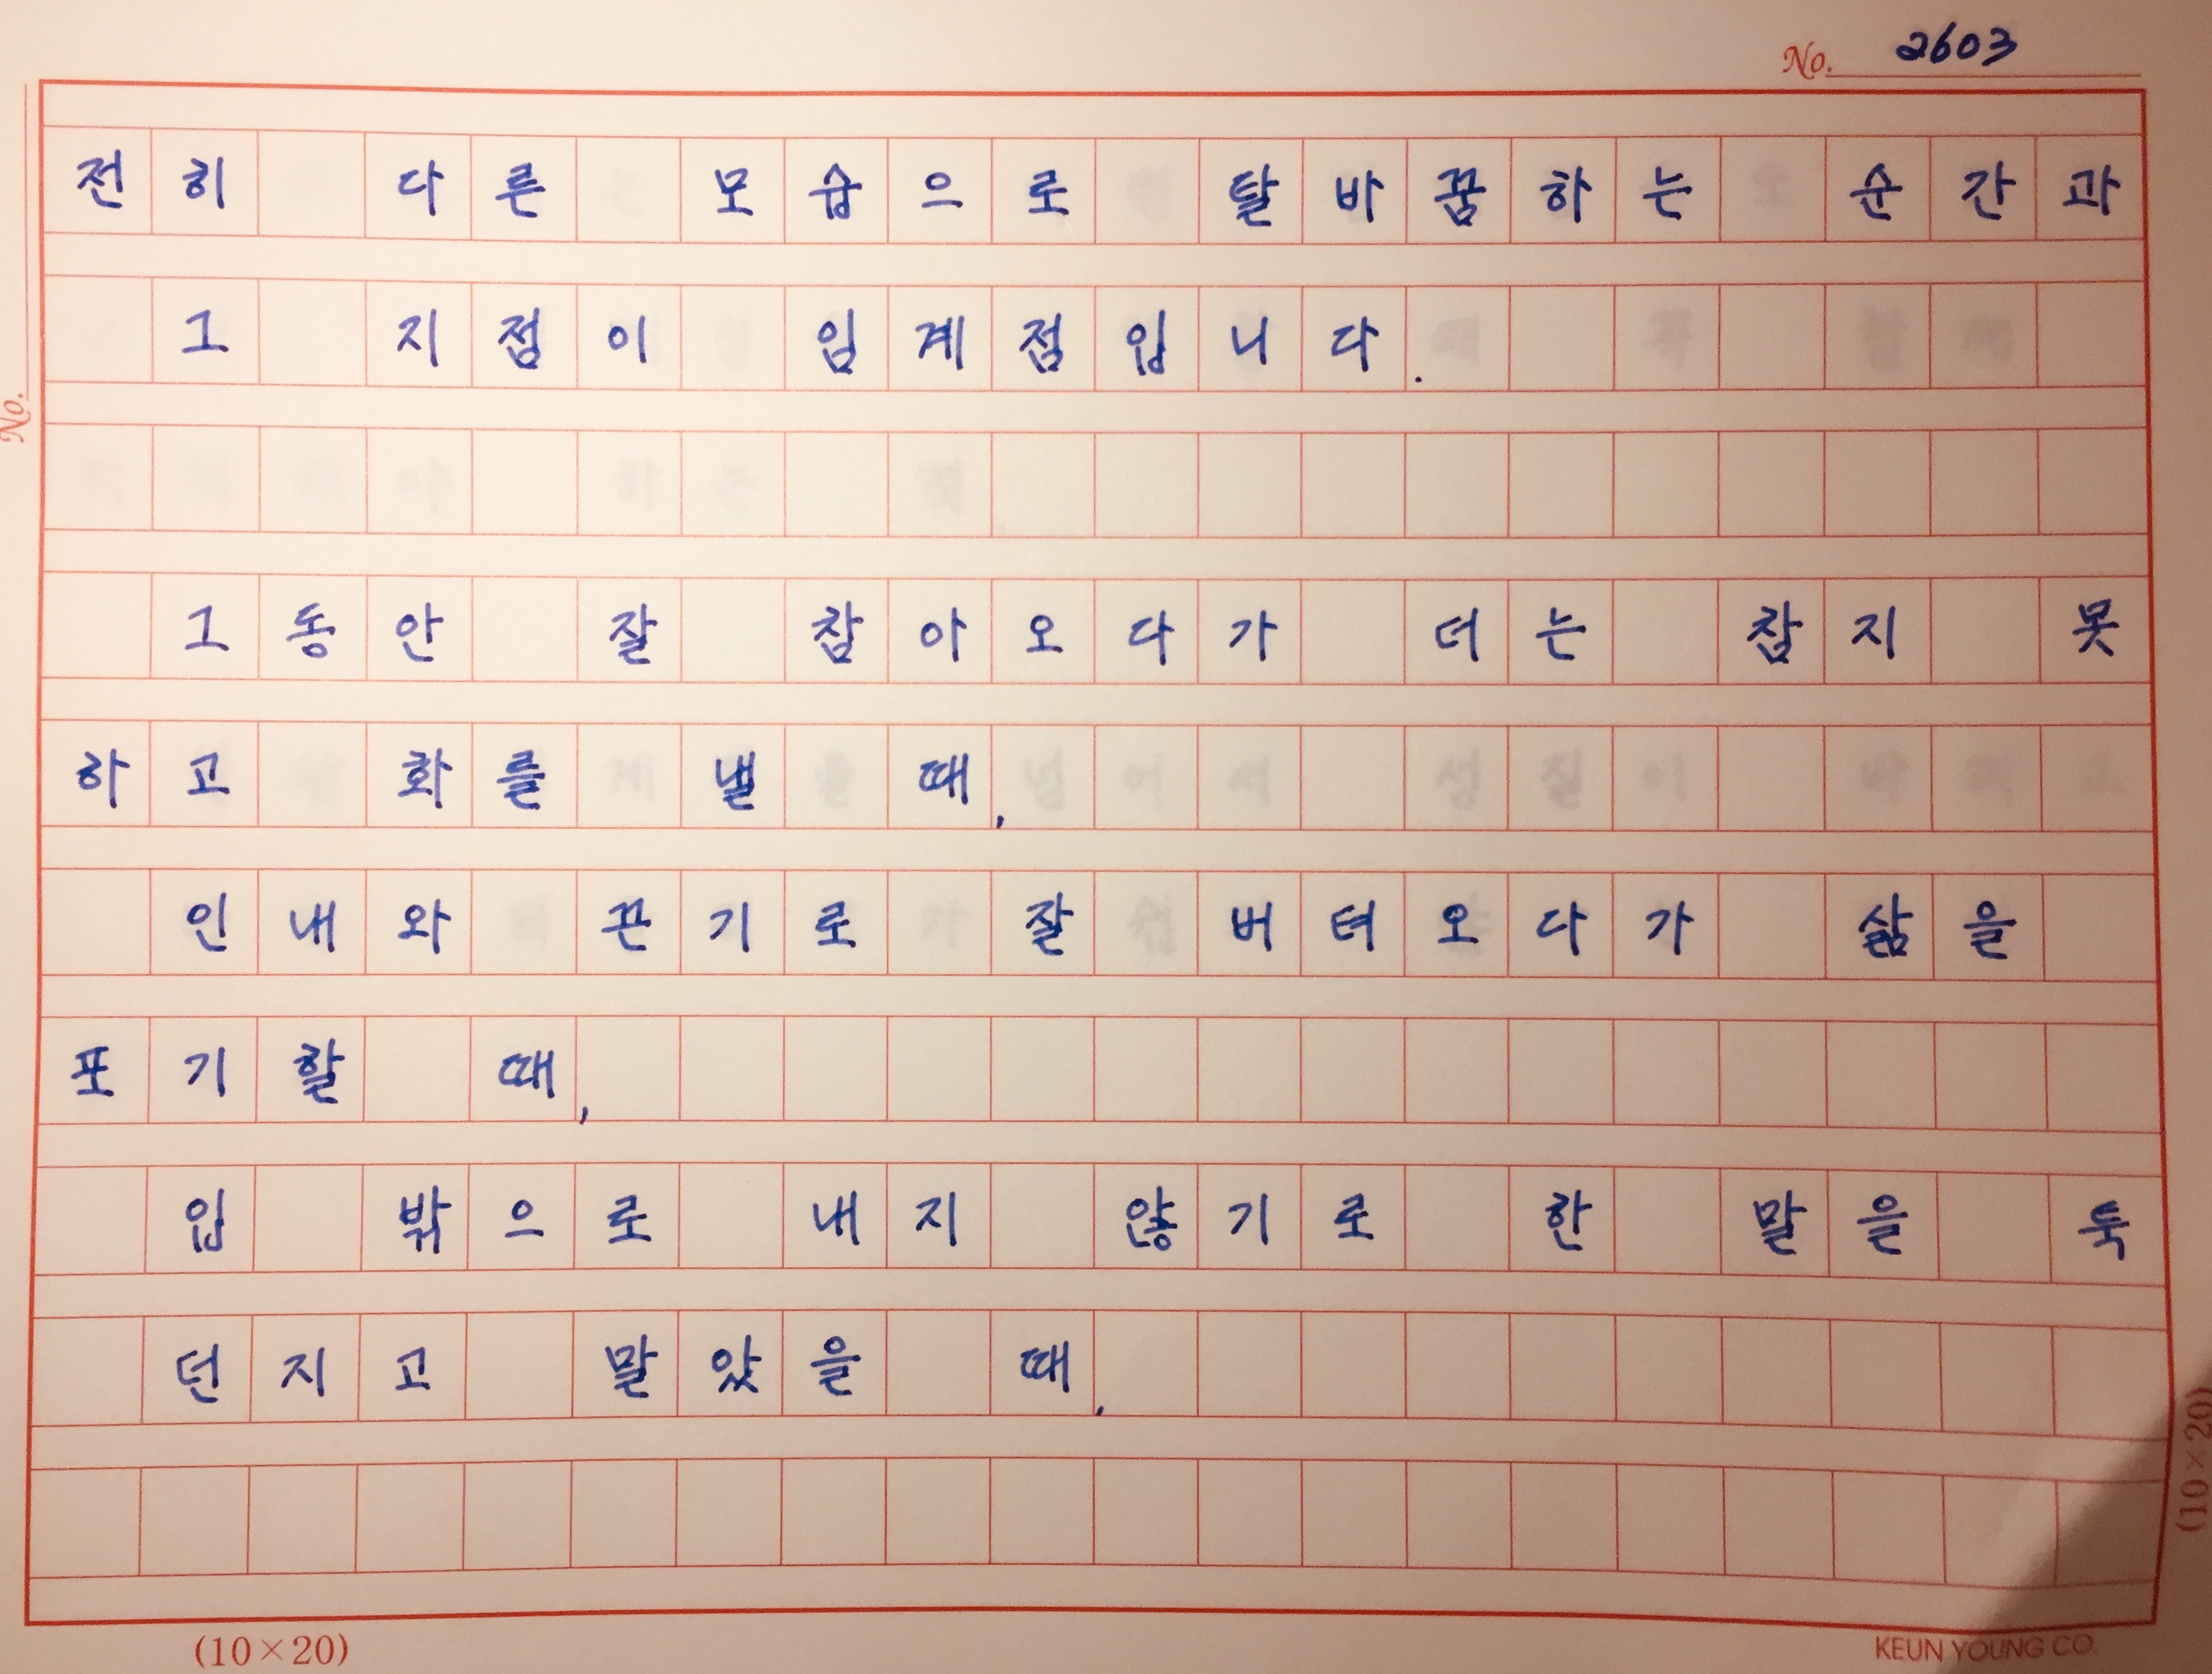 No. 2603
전히 다른 모습으로 탈바꿈하는 순간과
그 지점이 임계점입니다.
No.
그동안 잘 참아오다가 더는 참지 못
하고 화를 낼 때,
인내와 끈기로 잘 버텨오다가 삶을
포기할 때,
입 밖으로 내지 않기로 한 말을 툭
던지고 말았을 때,
(10×20)
(10×20)
KEUN YOUNG CO.